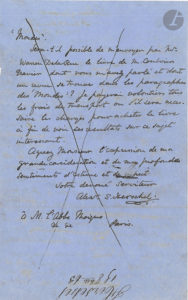 "Monsieur
Serait il possible de m'envoyer par Mr
Warren De la Rue le livre de M.
dont vous m'avez parlé et dont
un se trouve dans les paragraphes
des Mondes? je payerai volontiers tous
les frais de transport ou s'il sera
le change pour acheter le livre
à fin de voir les résultats sur ce sujet
intéressant.
Agréez Monsieur l'expression de ma
grande considération et de mes profonds
sentiments d'estime et
Votre dévoué Serviteur
Alex. S. Herschel.
à M. l'Abbé Moigno
Paris.
Herschel